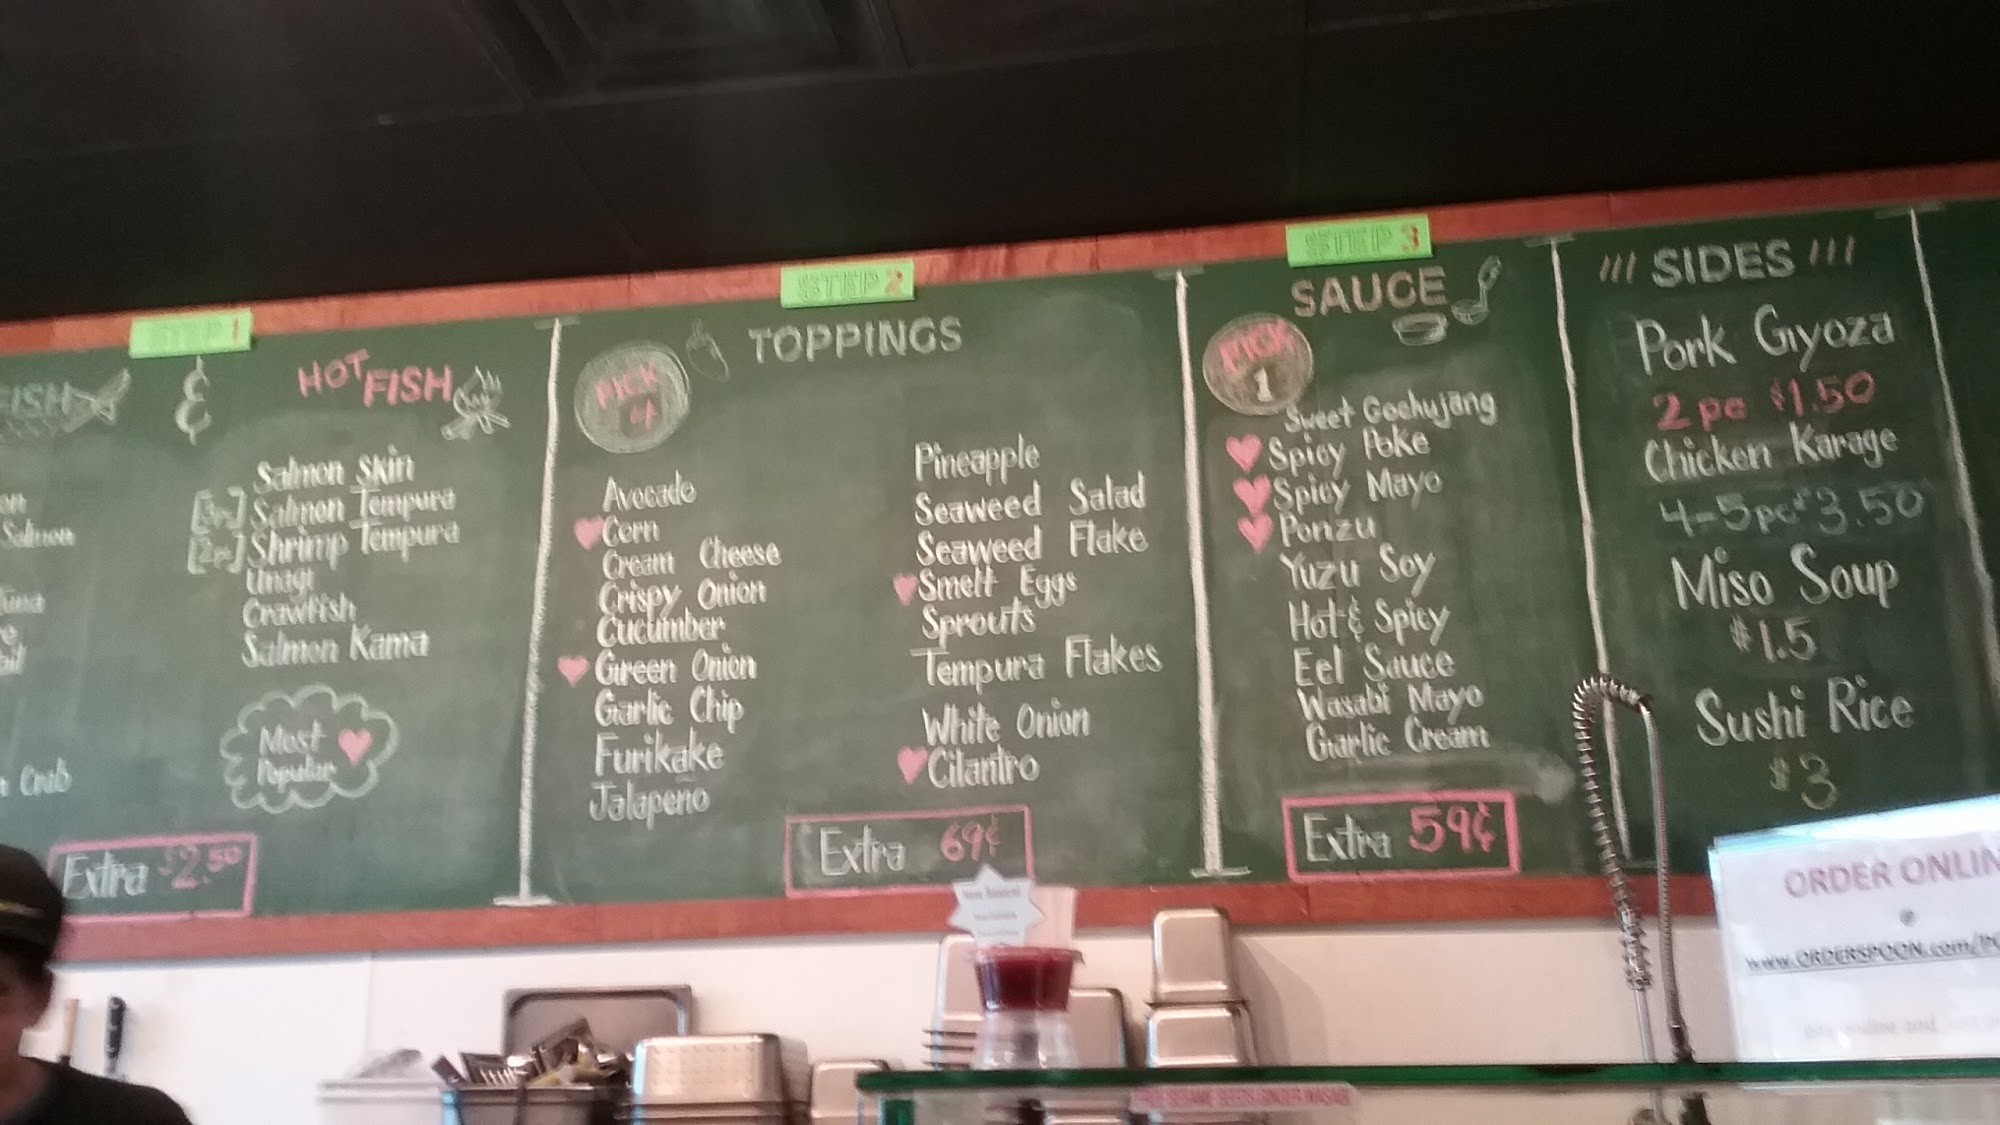 STEP 1
FISH & HOT FISH
on
Salmon
Tuna
Crab
Salmon Skin
[3pc] Salmon Tempura
[2pc] Shrimp Tempura
Unagi
Crawfish
Salmon Kama
Most Popular
Extra $2.50
STEP 2
PICK 4
TOPPINGS
Avocado
Corn
Cream Cheese
Crispy Onion
Cucumber
Green Onion
Garlic Chip
Furikake
Jalapeño
Pineapple
Seaweed Salad
Seaweed Flake
Smelt Eggs
Sprouts
Tempura Flakes
White Onion
Cilantro
Extra 69¢
STEP 3
SAUCE
PICK 1
Sweet Gochujang
Spicy Poke
Spicy Mayo
Ponzu
Yuzu Soy
Hot & Spicy
Eel Sauce
Wasabi Mayo
Garlic Cream
Extra 59¢
/// SIDES ///
Pork Gyoza
2 pc $1.50
Chicken Karage
4-5pc $3.50
Miso Soup
$1.5
Sushi Rice
$3
ORDER ONLIN
@
www.ORDERSPOON.com/PO